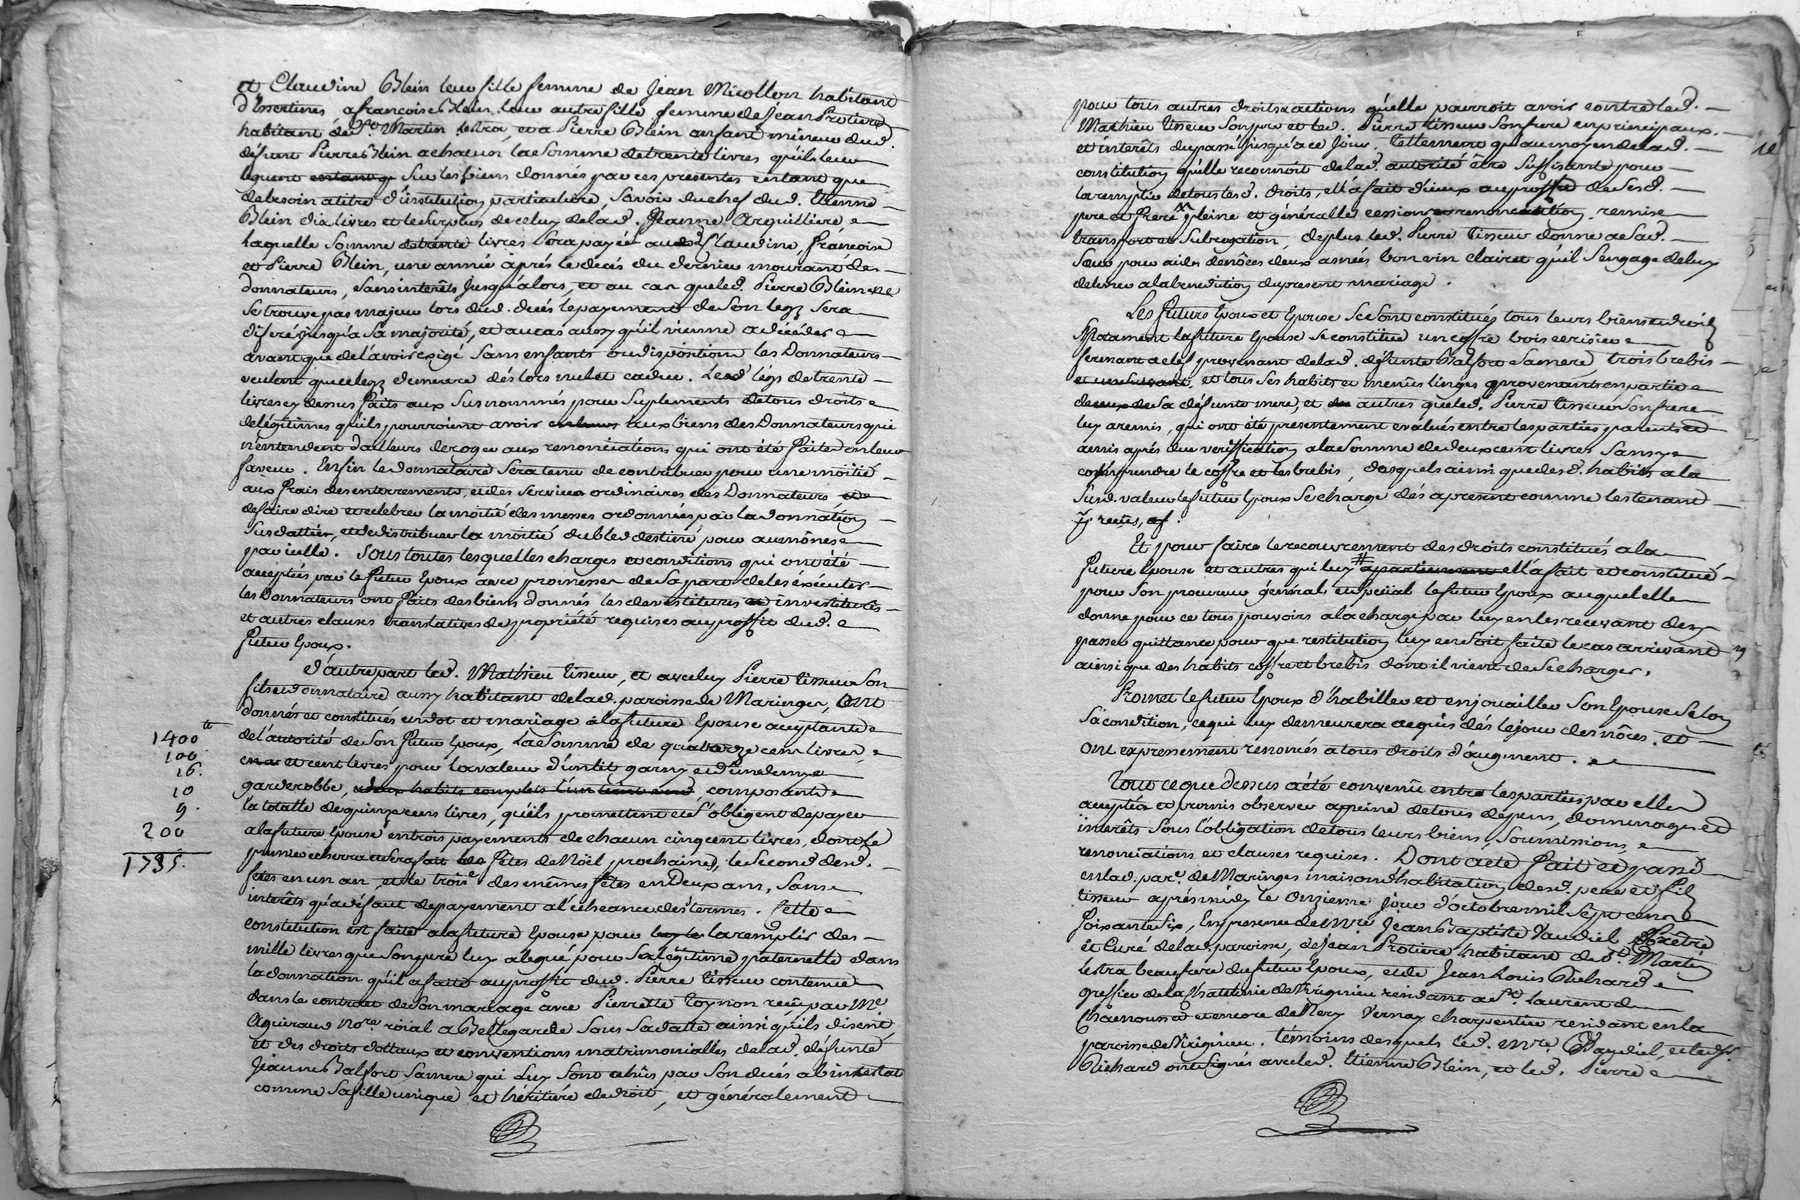 et Claudine Blein leur fille femme de Jean Micollon habitant
d'Essertines a françoise Blein leur autre fille femme de Jean Protiere
habitant de St. Martin Lestra, et a Pierre Blein enfant mineur dud.
défunt Pierre Blein a chacun la Somme de trente livres qu'ils leur
leguent entant q Sur les biens donnés par ces presentes en tant que
de besoin a titre d'institution particuliere, Savoir du chef dud. Etienne
Blein dix livres et le surplus de celuy de lad. Jeanne Arquilliere
Laquelle Somme de trente livres Sera payée auxd. Claudine, françoise
et Pierre Blein, une année aprés le decés du dernier mourant des
donnateurs, Sans interêts jusqu'alors, et au cas que led. Pierre Blein ne
Se trouve pas majeur lors dud. decés le payement de Son legz Sera
diferé jusqu'a Sa majorité, et au cas aussy qu'il vienne a décéder
avant que de l'avoir exigé Sans enfants ou disposition les Donnateurs
veulent que ce legz demeure dés lors nul et caduc. Lesd. légs de trente
livres cy dessus faits aux Susnommés pour Suplements de tous droits
de légitimes qu'ils pourroient avoir aux biens des Donnateurs qui
n'entendent d'ailleurs deroger aux renonciations qui ont été faites en leur
faveur. Enfin le donnataire Sera tenu de contribuer pour une moitié
aux frais des enterrements, et des Services ordinaires des Donnateurs et de
de faire dire et celebrer la moitié des messes ordonnées par la donnation
Susdattée, et de distribuer la moitié du bled destiné pour aumônes
par icelle. Sous toutes lesquelles charges et conditions qui ont été
acceptées par le futur Epoux avec promesses de Sa part de les éxécuter
les Donnateurs ont faits des biens donnés les devestitures et investitures
et autres clauses translatives de propriété requises au proffit dud.
futur Epoux.
D'autre part led. Mathieu Tisseur, et avec luy Pierre Tisseur Son
fils et donnataire aussy habitant de lad. paroisse de Maringes, ont
donnés et constitués en dot et mariage a la future Epouse acceptante
de l'autorité de Son futur Epoux, La Somme de quatorze cent livres,
et cent livres pour la valeur d'un lit garny et d'une demy
garderobbe, deux habits complets composante
la totalle de quinze cens livres, qu'ils promettent et S'obligent de payer
a la future Epouse en trois payements de chacun cinq cent livres, dont le
premier echerra et Sera fait fêtes de Noël prochaines, le Second esd.
fêtes en un an, et le troise. des mêmes fêtes en Deux ans, Sans
interêts qu'a défaut de payement a l'écheance des termes. Cette
constitution est faite a la future Epouse pour la remplir des
mille livres que Son pere luy a legué pour Sa légitime paternelle dans
la donnation qu'il a faite au proffit dud. Pierre Tisseur contenue
dans le contrat de Son mariage avec Pierrette Toynon reçu par Me.
Aguiraud Nore. roial a Bellegarde Sous Sa datte ainsi qu'ils disent
et des droits dottaux et conventions matrimonialles de lad. défunte
Jeanne Balfort Sa mere qui Luy Sont echûs par Son decés ab intestat
comme Sa fille unique et heritiere de droit, et généralement
1400tt
100
16.
10
9.
200
1735.
pour tous autres droits et actions qu'elle pourroit avoir contre led.
Mathieu Tisseur Son pere et led. Pierre Tisseur Son frere en principaux
et interêts du passé jusqu'a ce jour. Tellement qu'au moyen de lad.
constitution qu'elle reconnoit de lad. autorité être Suffisante pour
la remplir de tous lesd. droits, ell'a fait d'iceux au proffit de Sesd.
pere et frere pleine et généralle cession renonciation, remise
transport et Subrogation, de plus led. Pierre Tisseur donne a Sad.
Sœur pour aides de nôces deux asnées bon vin clairet qu'il S'engage de luy
delivrer a la benediction du present mariage.
Les futurs Epoux et Epouse Se Sont constitués tous leurs biens et droits
Notament la future Epouse Se constitue un coffre bois cerisier
fermant a clef provenant de lad. défunte Balfort Sa mere, trois brebis
et tous Ses habits et menus linges provenants en partie
de Sa défunte mere, et autres que led. Pierre Tisseur Son frere
luy a remis, qui ont été presentement evalués entre les parties parents et
amis aprés due verification a la Somme de deux cent livres Sans y
comprendre le coffre et les brebis, desquels ainsi que desd. habits a la
Susd. valeur le futur Epoux Se charge dés a present comme les tenant
reçus,
Et pour faire le recouvrement des droits constitués a la
future Epouse et autres qui luy # appartiennent ell'a fait et constitué
pour Son procureur général et Spécial le futur Epoux auquel elle
donne pour ce tous pouvoirs a la charge par luy en les recevant d'en
passer quittance pour que restitution luy en Soit faite le cas arrivant
ainsi que des habits coffre et brebis dont il vient de Se charger.
Promet le futur Epoux d'habiller et enjouailler Son Epouse Selon
Sa condition, ce qui luy demeurera acquis dés le jour des nôces. et
ont expressement renoncés a tous droits d'augment.
Tout ce que dessus a été convenû entre les parties par elles
accepté et promis observer a peine de tous dépens, dommages et
interêts Sous l'obligation de tous leurs biens, Soumissions,
renonciations et clauses requises. Dont acte fait et passé
en lad. pare. de Maringes maison d'habitation desd. pere et fils
Tisseur aprés midy le onzieme jour d'octobre mil Sept cent
Soixante Six, En presence de mre. Jean Baptiste Vaudiel Prêtre
et Curé de lad. paroisse, de Jean Protiere habitant de St. Martin
Lestra beaufrere du futur Epoux, et de Jean Louis Richard
greffier de la Chatelenie de Virignieu residant a St. Laurent de
Chamousset et encore de Mery Vernay charpentier residant en la
paroisse de Virignieu. Témoins desquels led. mre. Vaudiel, et led. Sr.
Richard ont Signés avec led. Etienne Blein, et led. Pierre